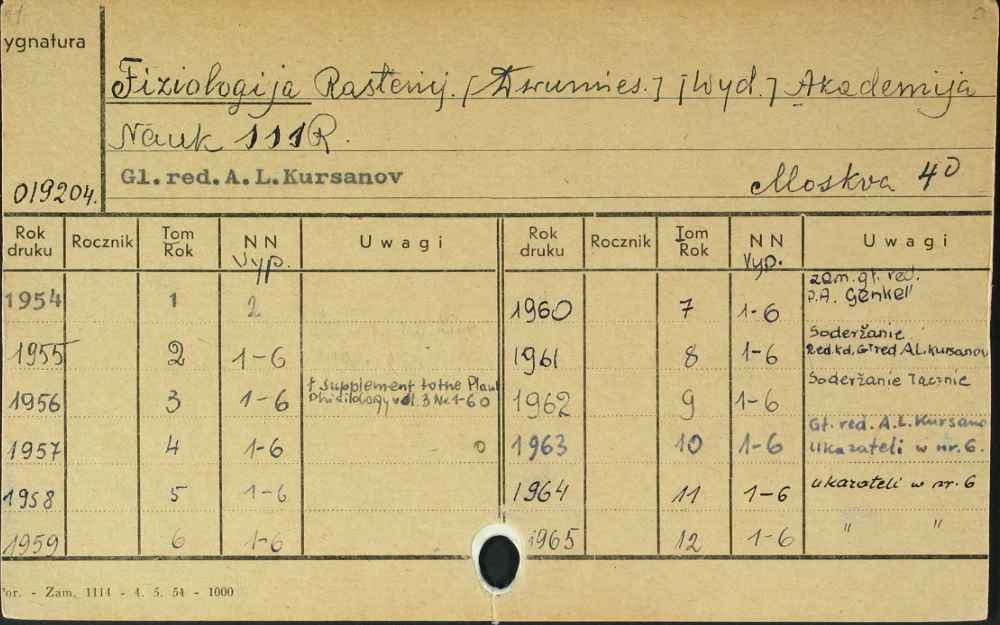 ygnatura
Fiziologija Rastenij. [Dwumies.] [Wyd.] Akademija
Nauk SSSR.
Gl. red. A. L. Kursanov
Moskva 4°
019204.
Rok druku Rocznik Tom Rok NN Vyp. Uwagi Rok druku Rocznik Tom Rok NN Vyp. Uwagi
1954 1 2 1960 7 1-6 zam. gł. red. P.A. Genkel'
1955 2 1-6 1961 8 1-6 Soderžanie Red. kol. Gł red A.L. Kursanov
1956 3 1-6 + supplement to the Plant Phisiology vol. 3 Nr. 1-6 0 1962 9 1-6 Soderžanie łącznie
1957 4 1-6 0 1963 10 1-6 Gł. red. A.L. Kursano Ukazateli w nr. 6.
1958 5 1-6 1964 11 1-6 ukazateli w nr. 6
1959 6 1-6 1965 12 1-6 " "
or. - Zam. 1114 - 4. 5. 54 - 1000